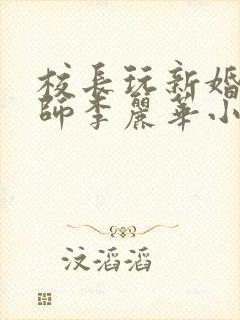 校長玩新婚
師李麗華小
汶滔滔